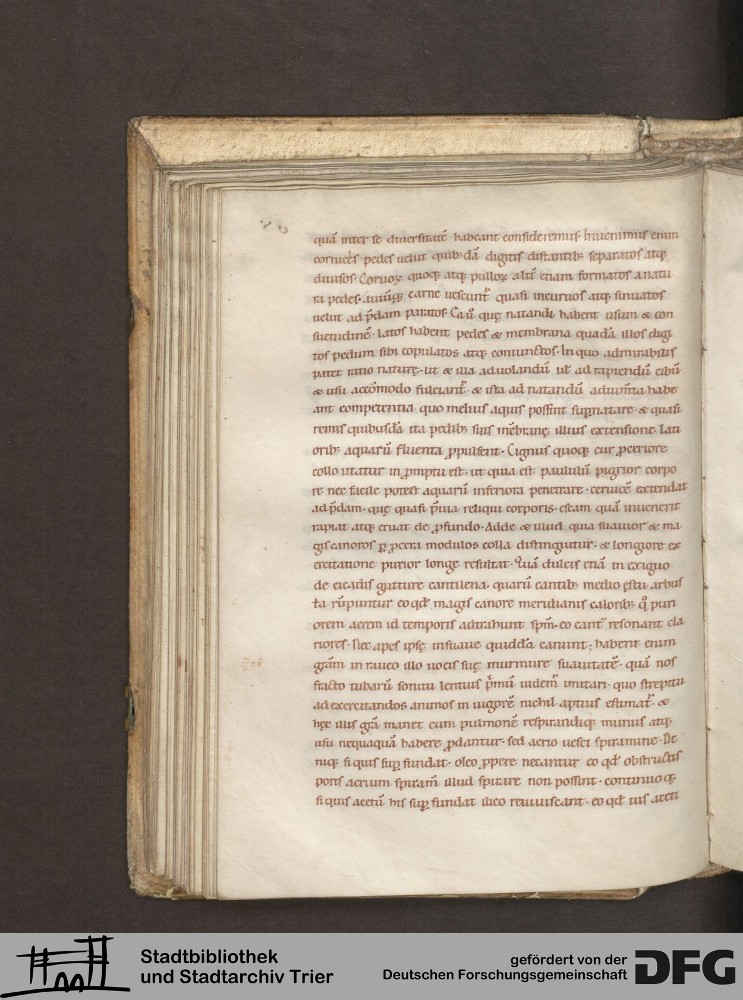 quā inter se diuersitatē habeant consideremus. Inuenimus enim
cornicēs pedes uelut quibꝰdā digitis distantibꝰ separatos atqꝫ
diuisos. Coruoꝝ quoqꝫ atqꝫ pulloꝝ alit̄ etiam formatos a natu
ra pedes. carne uescunt᷑ quasi incuruos atqꝫ sinuatos
uelut ad p̄dam paratos. Ca᷑ que natandi habent usum & con
suetudinē. latos habent pedes & membrana quadā illos digi
tos pedum sibi copulatos atqꝫ coniunctos. In quo admirabilis
patet ratio naturę. ut & illa ad uolandū ul̄ ad rapiendū cibū
& usu accōmodo fulciant᷑ & ista ad natandū adium̄ta habe
ant competentia quo melius aquis possint supnatare. & quasi
remis quibusdā ita pedibꝰ suis mēbranę illius extensione lati
oribꝰ aquarū fluenta ꝓpulsent. Cignus quoqꝫ cur ꝓceriore
collo utatur in promptu est. ut quia est paululū pigrior corpo
re nec facile potest aquarū inferiora penetrare. ceruicē extendat
ad p̄dam. quę quasi p̄uia reliqui corporis. escam quā inuenerit
rapiat atqꝫ eruat de ꝓfundo. Adde & illud quia suauior & ma
gis canoros ꝑ ꝓcera modulos colla distinguitur. & longiore ex
ercitatione purior longe resultat. Quā dulcis etiā in exiguo
de cicadis gutture cantilena. quarū cantibꝰ medio ęstu arbus
ta rūpuntur eo qđ magis canore meridianis caloribꝰ qͦ puri
orem aerem id temporis adtrahunt spm̄. eo cant᷑ resonant cla
riores. Nec apes ipsę insuaue quiddā canunt; habent enim
grām in rauco illo uocis suę murmure suauitatē. quā nos
fracto tubarū sonitu lentius p̄mū uidem᷑ imitari. quo strepitu
ad exercitandos animos in uigorē nichil aptius estimat᷑. &
hęc illis grā manet cum pulmonē respirandiqꝫ munus atqꝫ
usu nequaquā habere ꝓdantur. sed aerio uesci spiramine. De
niqꝫ si quis suꝑ fundat. oleo ꝓpere necantur eo qđ obstructis
poris aerium spiram̄ illud spirare non possint. continuo qꝫ
si quis acetū his suꝑ fundat ilico reuiuiscant. eo qđ uis aceti
Stadtbibliothek
und Stadtarchiv Trier
gefördert von der
Deutschen Forschungsgemeinschaft
DFG